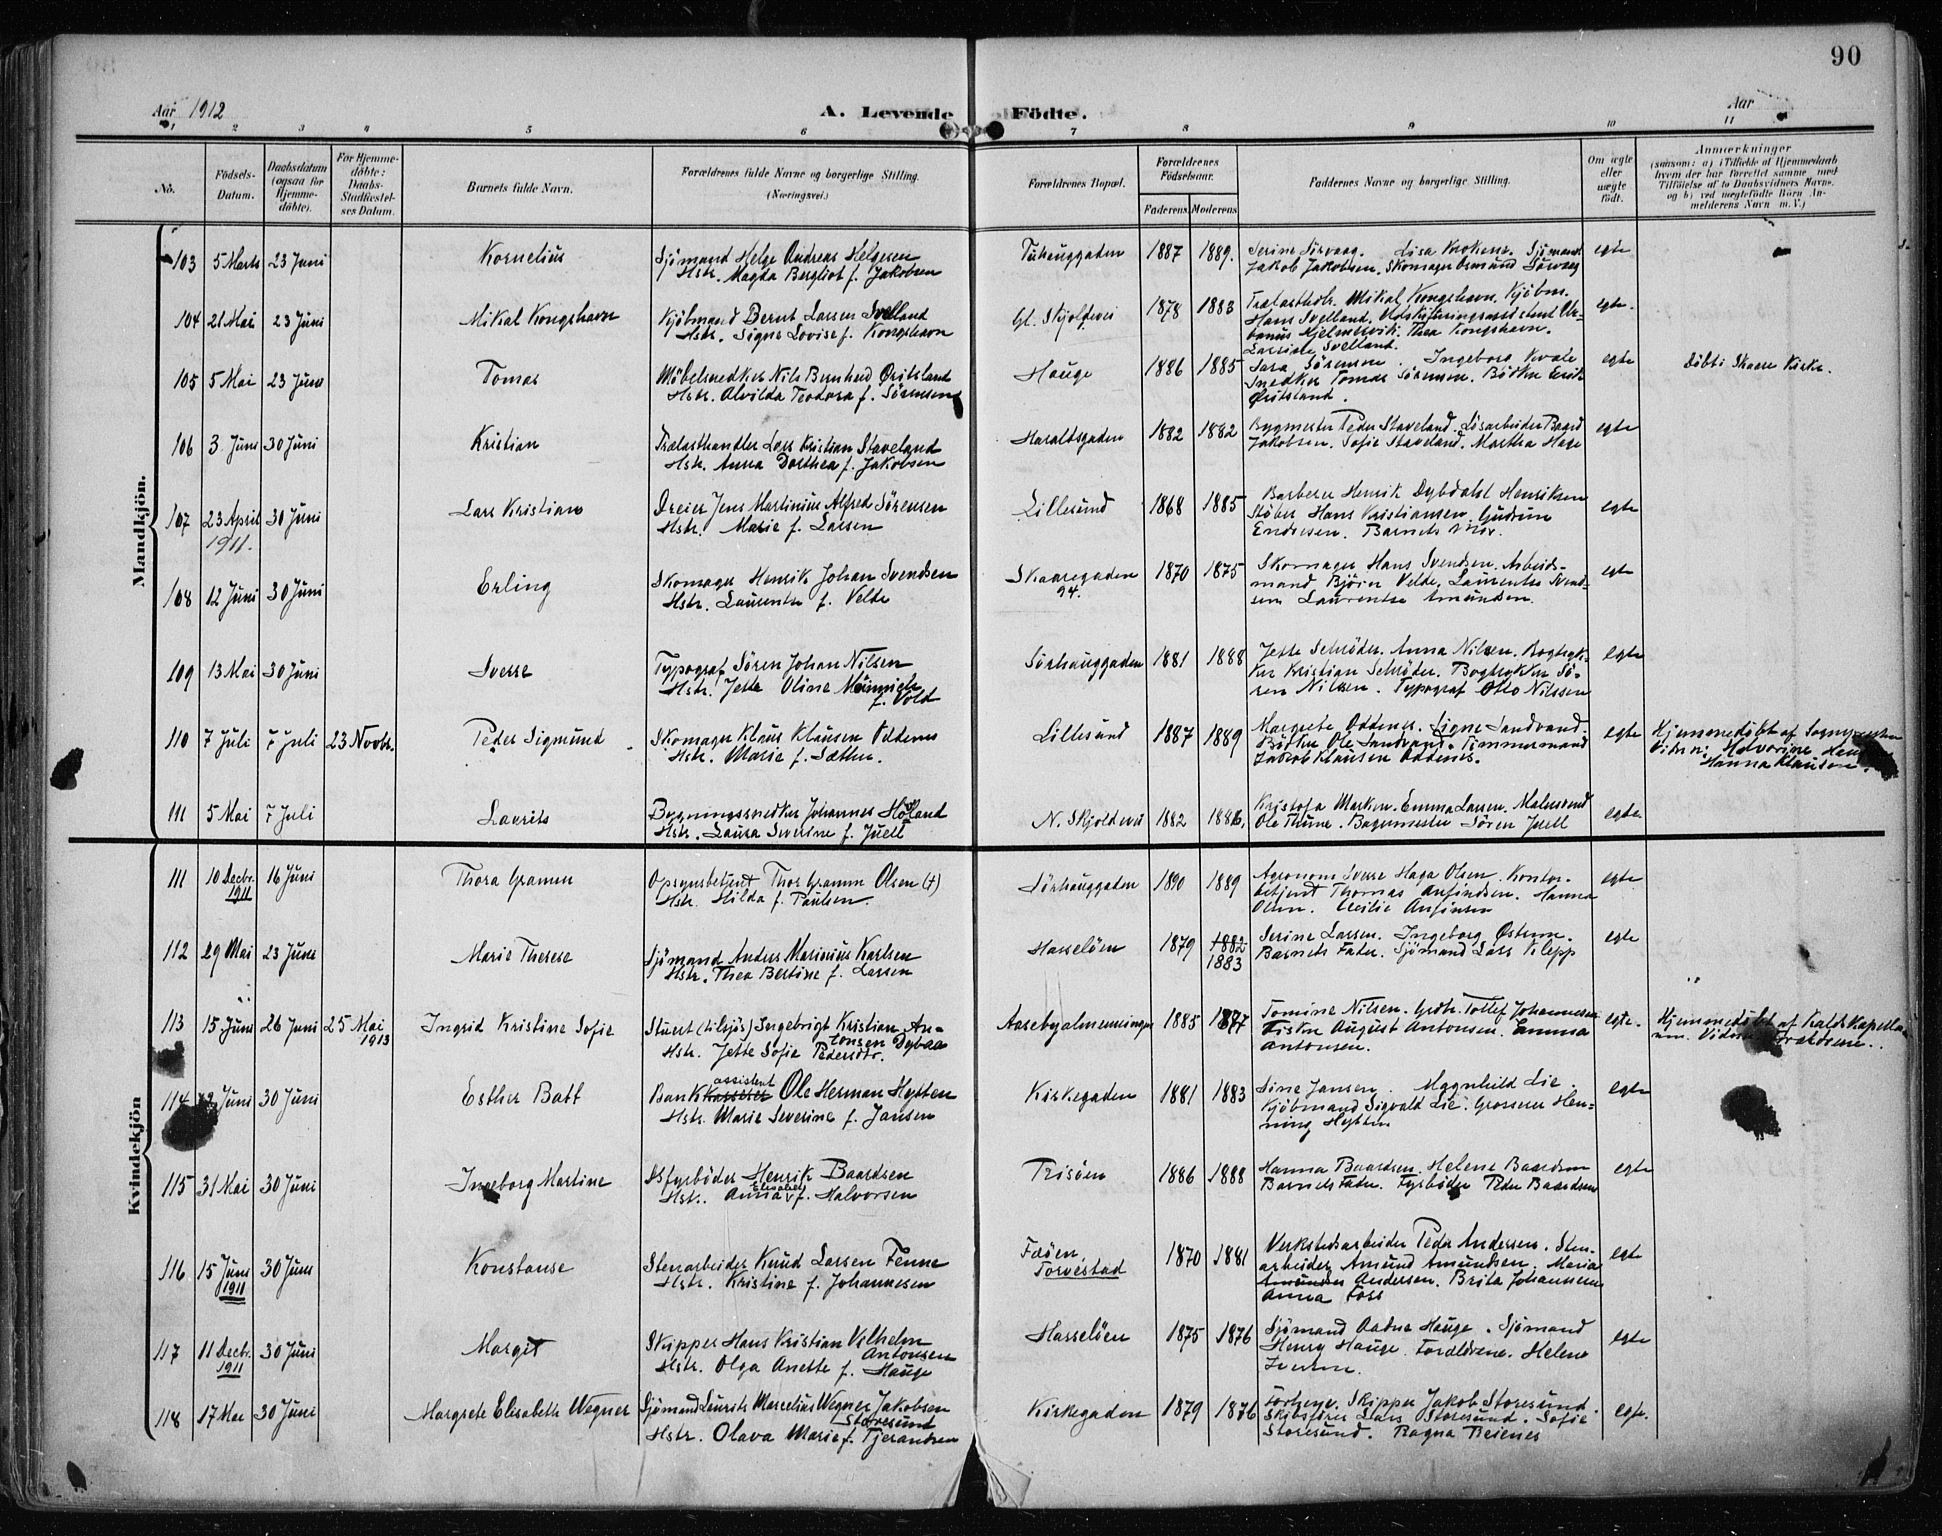 90
Aar 1912
A. Levende Födte.
Aar
1 2 3 4 5 6 7 8 9 10 11
No.
Födsels-Datum.
Daabsdatum (ogsaa for Hjemme-döbte).
For Hjemme-döbte: Daabs-Stadfæstel-ses Datum.
Barnets fulde Navn.
Forældrenes fulde Navne og borgerlige Stilling. (Næringsvei.)
Forældrenes Bopæl.
Forældrenes Födselsaar.
Faderens Moderens
Faddernes Navne og borgerlige Stilling.
Om ægte eller uægte födt.
Anmærkninger
(saasom: a) i Tilfælde af Hjemmedaab
hvem der har forrettet samme med
Tilföielse af to Daabsvidners Navne.
og b) ved uægtefödte Börn An-
melderens Navn m. V.)
Mandkjön.
103 5 Marts 23 Juni Kornelius Sjömand Helge Andreas Helgesen
Hstr. Magda Bergliot f. Jakobsen
Tuhauggaden 1887 1889. Serine Sörvaag. Lisa Krokens. Sjömand
Jakob Jakobsen. Skomager Osmund Sörvaag
egte
104 21 Mai 23 Juni Mikal Kongshavn Kjöbmand Bernt Larsen Svelland
Hstr. Signe Lovise f. Kongshavn
Gl. Skjoldvei 1878 1883 Trælasthdlr. Mikal Kongshavn. Kjöbm.
Hans Svelland. Thea Kongshavn.
Svelland.
egte.
105 5 Mai 23 Juni Tomas Möbelsnedker Nils Bernhard Öritsland
Hstr. Alvilda Teodora f. Sörensen
Hauge 1886 1885 Sara Sörensen. Ingeborg Kvale
Snedker Tomas Sörensen. Bödker Erik
Öritsland.
egte Döbt i Skaare Kirke.
106 3 Juni 30 Juni Kristian Trælasthandler Lars Kristian Staveland
Hstr. Anna Dorthea f. Jakobsen
Haraldsgaden 1882 1882 Bygmester Peder Staveland. Lösarbeider Bagid
Jakobsen. Sofie Staveland. Martha Hage
egte
107 23 April 30 Juni Lars Kristian Dreier Jens Martinius Alfred Sörensen
1911.
Hstr. Marie f. Larsen
Lillesund 1868 1885 Barberer Henrik Dybdahl Henriksen
Stöber Hans Kristiansen. Gudrun
Endresen. Barnets Mor.
egte
108 12 Juni 30 Juni Erling Skomager Henrik Johan Svendsen
Hstr. Laurentse f. Velde
Skaaregaden
94.
1870 1875 Skomager Hans Svendsen. Arbeids-
mand Björn Velde. Laurentse Svend-
sen Laurentse Amundsen.
egte
109 13 Mai 30 Juni Sverre Typograf Sören Johan Nilsen
Hstr. Jette Oline Meinnich
f. Vold
Sörhauggaden 1881 1888 Jette Schröder. Anna Nilsen. Bogtryk-
ker Kristian Schröder. Bogtrykker Sö-
ren Nilsen. Typograf Otto Nilssen
egte
110 7 Juli 7 Juli 23 Novbr. Peder Sigmund Skomager Klaus Klausen Oddenes
Hstr. Marie f. Sæther.
Lillesund 1887 1889 Margrete Oddenes. Signe Sandvand.
Bödker Ole Sandvand. Timmermand
Jakob Klausen Oddenes.
egte Hjemmedöbt af Sognepresten
Vidn: Halvorine
Hanna Klausen.
111 5 Mai 7 Juli Laurits Bygningssnedker Johannes Höland
Hstr. Laura Severine f. Juell
N. Skjoldvei 1882 1886. Kristofa Marken. Emma Larsen. Malersvend
Ole Thune. Bagermester Sören Juell
egte.
Kvindekjön
111 10 Decbr. 16 Juni Thora Gramm Opsynsbetjent Thor Gramm Olsen (†)
1911
Hstr. Hilda f. Paulsen.
Sörhauggaden 1890 1889 Agronom Sverre Haga Olsen. Kontor-
betjent Thomas Anfindsen. Hanna
Olsen. Cecilie Anfinsen
egte
112 29 Mai 23 Juni Marie Therese Sjömand Anders Marinius Karlsen
Hstr. Thea Bertine f. Larsen
Hasselöen 1879 1882
1883
Serine Larsen. Ingeborg Östrem.
Barnets Fader. Sjömand Lars Klepp
egte
113 15 Juni 26 Juni 25 Mai 1913 Ingrid Kristine Sofie Stuert (tilsjös) Ingebrigt Kristian An-
tonsen Dybaa
Hstr. Jette Sofie Pedersdtr.
Aasebyalmenningen 1885 1887 Tomine Nilsen. Grdbr. Tollef Johannessen
Fisker August Antonsen. Emma
Antonsen.
egte. Hjemmedöbt af Kaldskapella-
nen.
114 12 Juni 30 Juni Esther Batt Bankkasserer assistent Ole Herman Hytten
Hstr. Marie Severine f. Jansen
Kirkegaden 1881 1883 Sine Jansen. Magnhild Lie.
Kjöbmand Sigvald Lie. Grosserer Hen-
ning Hytten
egte
115 31 Mai 30 Juni Ingeborg Martine Fyrböder Henrik Baardsen
Hstr. Anna Elisabet f. Halvorsen
Risöen 1886 1888 Hanna Baardsen. Helene Baardsen
Barnets Fader. Fyrböder Peder Baardsen
egte
116 15 Juni 30 Juni Konstanse Stenarbeider Knud Larsen Fenne
1911
Hstr. Kristine f. Johannesen
Faöen.
Torvestad
1870 1881 Verkstedsarbeider Peder Andersen. Sten-
arbeider Amund Amundsen. Maria
Amundsen Andersen. Brita Johannesen
Anna Foss
egte
117 11 Decbr. 30 Juni Margit Skipper Hans Kristian Vilhelm
1911
Antonsen
Hstr. Olga Anette f. Hauge
Hasselöen 1875 1876 Sjömand Aadne Hauge. Sjömand
Henry Hauge. Forældrene. Helene
egte
118 17 Mai 30 Juni Margrete Elisabeth Wegner Sjömand Laurits Marcelius Wegner Jakobsen
Storesund
Hstr. Olava Marie f. Tjerandsen
Kirkegaden 1879 1876 Forhenv. Skipper Jakob Storesund.
Skibsförer Lars Storesund. Sofie
Storesund. Ragna Beienes
egte.